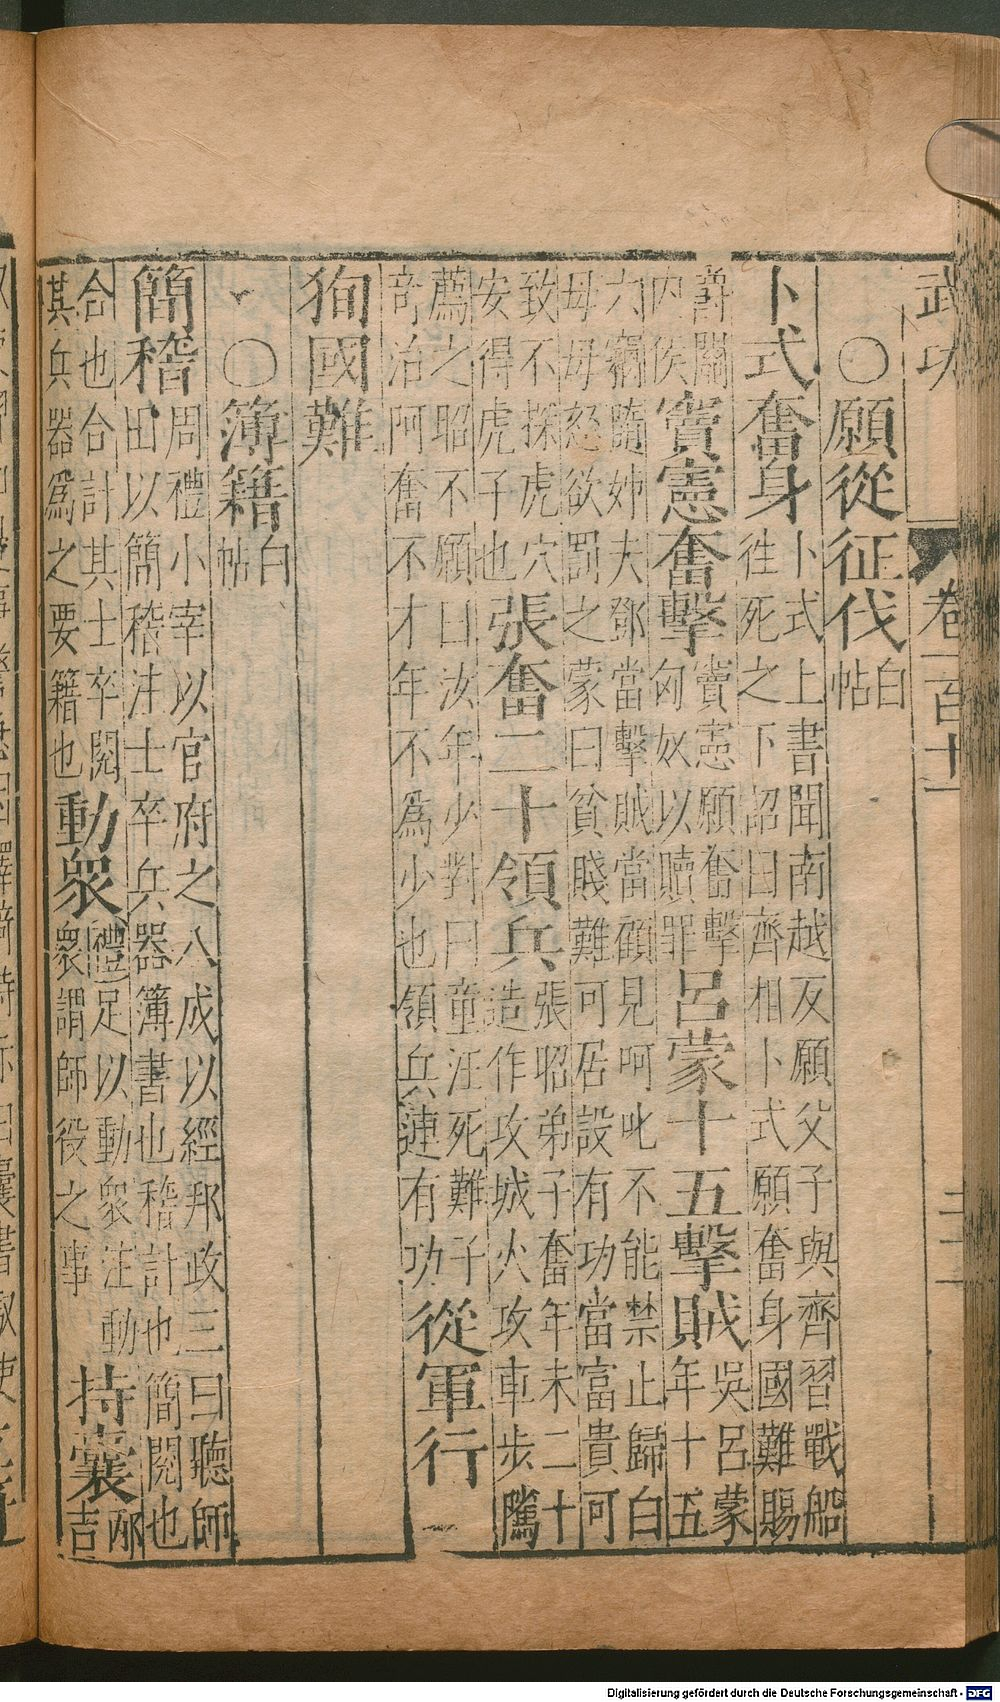 武功 卷一百十一
〇願從征伐 白帖
卜式奮身 卜式上書聞南越反願父子與齊習戰船
徃死之下詔曰齊相卜式願奮身國難賜
爵關
内侯
竇憲奮擊 竇憲願奮擊
匈奴以贖罪
呂蒙十五擊賊 吳呂蒙
年十五
六竊隨姊夫鄧當擊賊當顧見呵叱不能禁止歸白
母母怒欲罰之蒙曰貧賤難可居設有功當富貴可
致不探虎穴
安得虎子也
張奮二十領兵 張昭弟子奮年未二十
造作攻城火攻車步騭
薦之昭不願曰汝年少對曰童汪死難子
奇治阿奮不才年不爲少也領兵連有功
從軍行 一
狥國難
〇簿籍 白帖
簡稽 周禮小宰以官府之八成以經邦政三曰聽師
田以簡稽注士卒兵器簿書也稽計也簡閱也
合也合計其士卒閱
其兵器爲之要籍也
動衆 禮足以動衆注動
衆謂師役之事
持囊 邴
吉
Digitalisierung gefördert durch die Deutsche Forschungsgemeinschaft - DFG